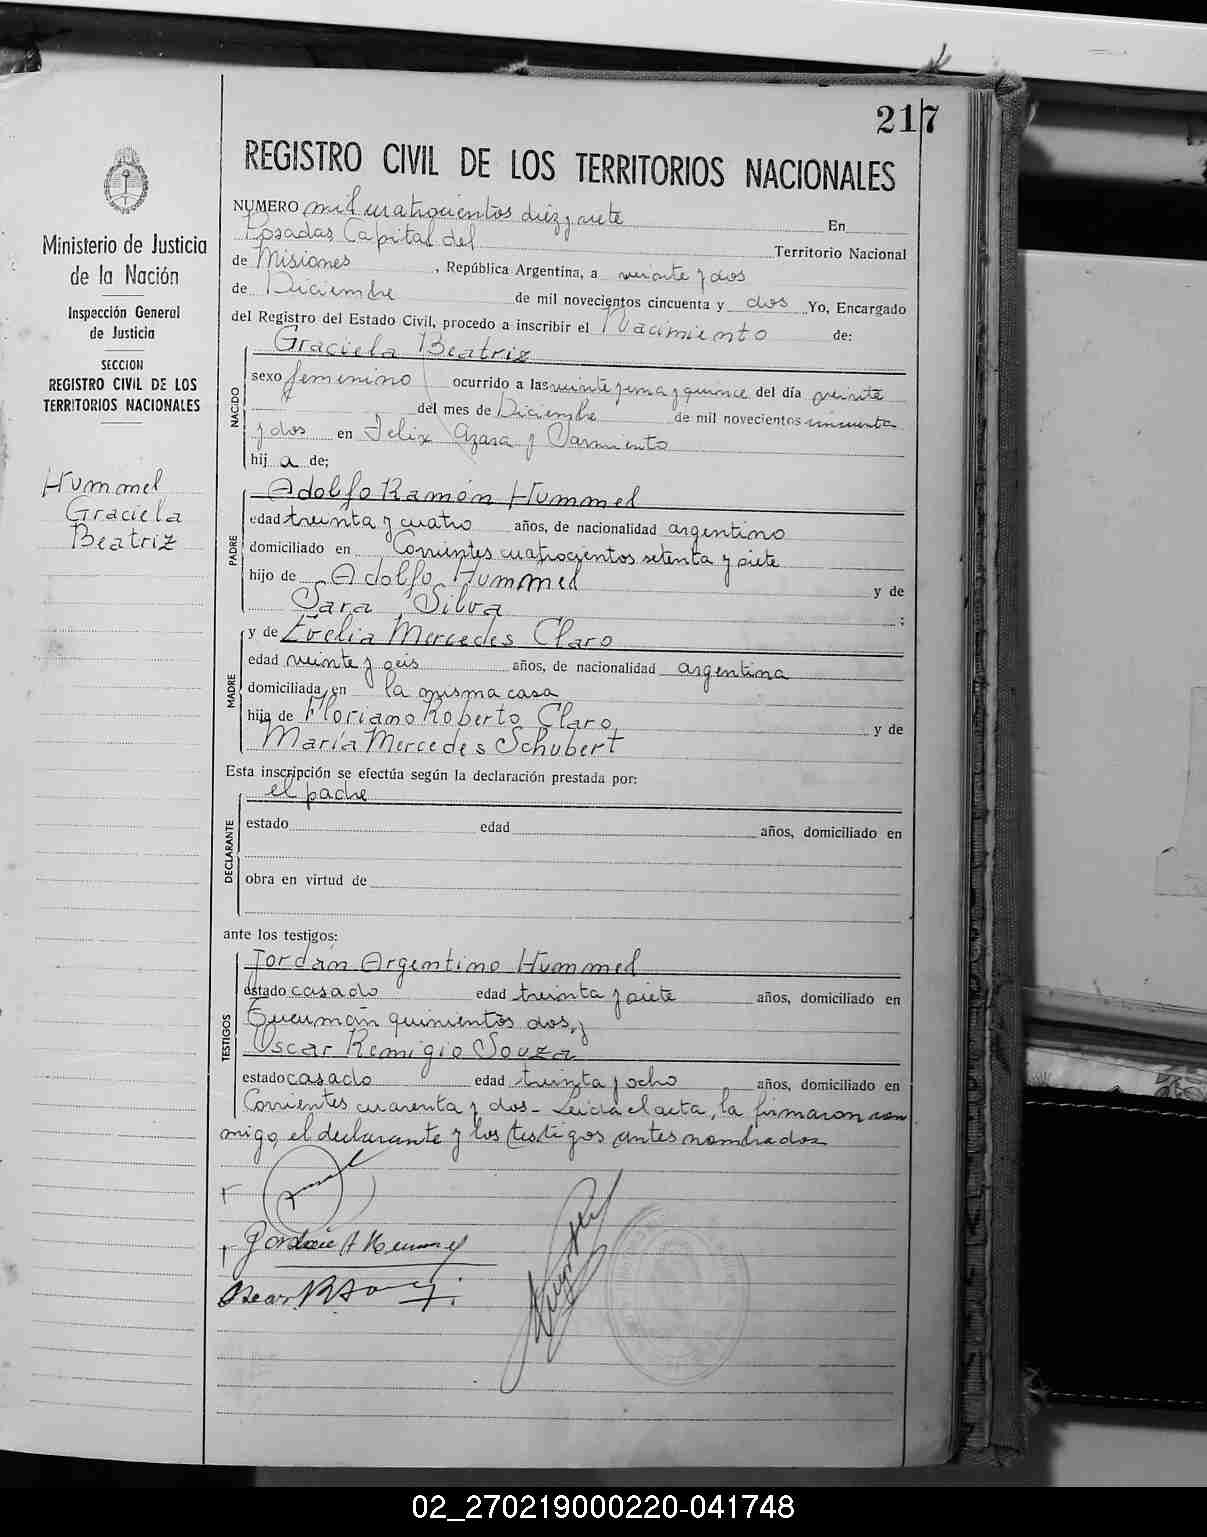 217
REGISTRO CIVIL DE LOS TERRITORIOS NACIONALES
Ministerio de Justicia
de la Nación
Inspección General
de Justicia
SECCION
REGISTRO CIVIL DE LOS
TERRITORIOS NACIONALES
Hummel
Graciela
Beatriz
NUMERO mil cuatrocientos diez y siete En
Posadas Capital del Territorio Nacional
de Misiones, República Argentina, a veinte y dos
de Diciembre de mil novecientos cincuenta y dos Yo, Encargado
del Registro del Estado Civil, procedo a inscribir el Nacimiento de:
NACIDO
Graciela Beatriz
sexo femenino ocurrido a las veinte y una y quince del día veinte
del mes de Diciembre de mil novecientos cincuenta
y dos en Felix Azara y Sarmiento
hij a de;
PADRE
Adolfo Ramón Hummel
edad treinta y cuatro años, de nacionalidad argentino
domiciliado en Corrientes cuatrocientos setenta y siete
hijo de Adolfo Hummel y de
Sara Silva ;
MADRE
y de Evelia Mercedes Claro
edad veinte y seis años, de nacionalidad argentina
domiciliada en la misma casa
hija de Floriano Roberto Claro y de
María Mercedes Schubert
Esta inscripción se efectúa según la declaración prestada por:
DECLARANTE
el padre
estado edad años, domiciliado en
obra en virtud de
ante los testigos:
TESTIGOS
Jordán Argentino Hummel
estado casado edad treinta y siete años, domiciliado en
Tucumán quinientos dos, y
Oscar Remigio Souza
estado casado edad treinta y ocho años, domiciliado en
Corrientes cuarenta y dos - Leida el acta, la firmaron con
migo, el declarante y los testigos antes nombrados
02_270219000220-041748